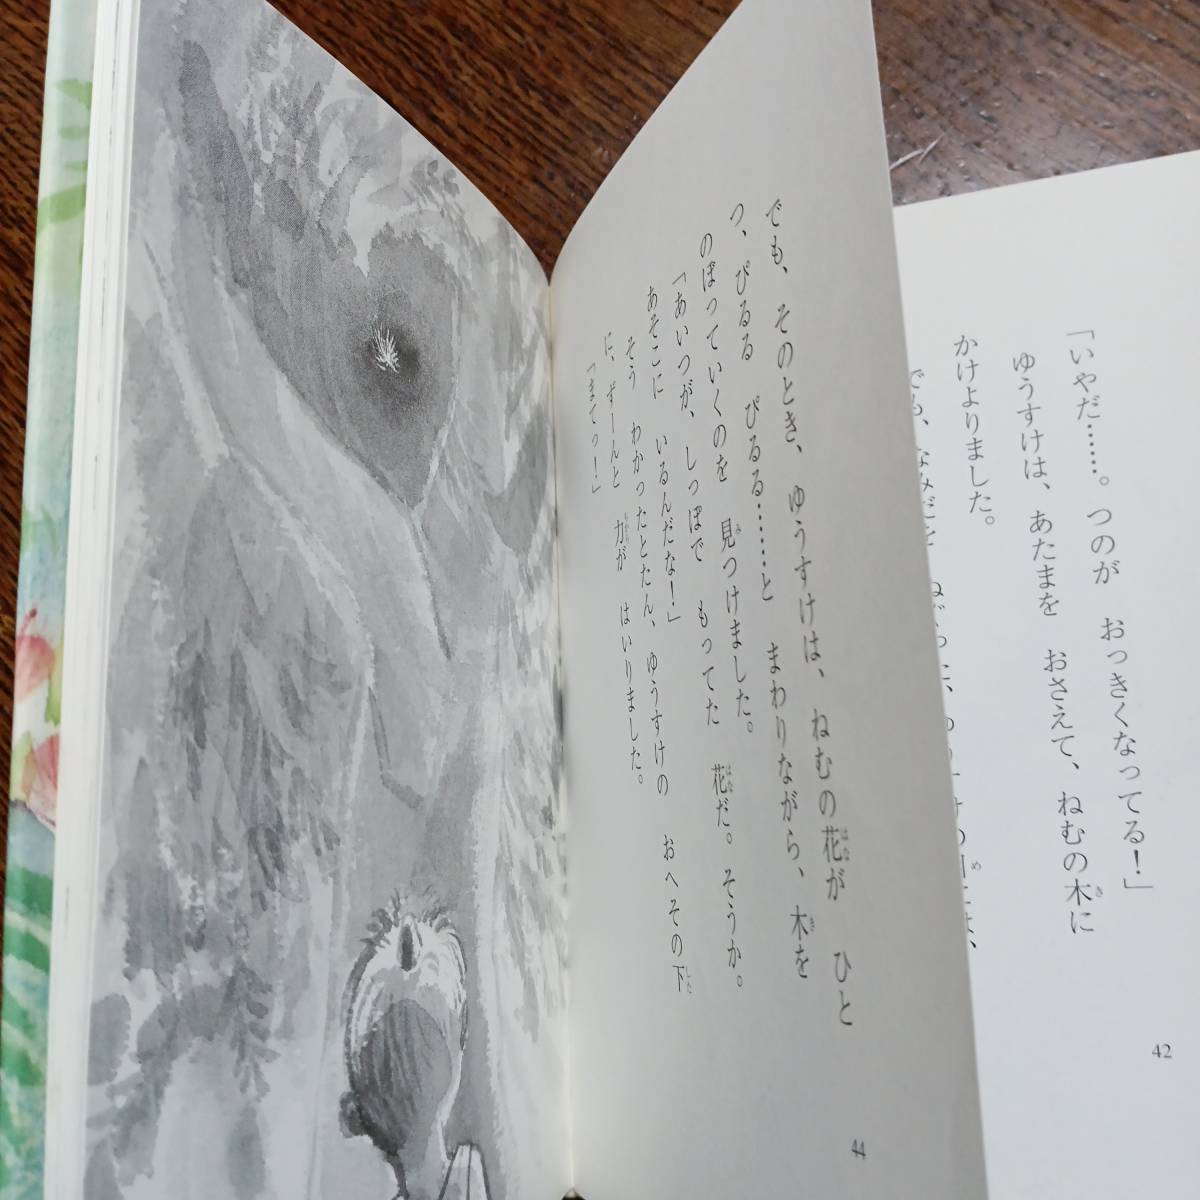 「いやだ……。つのが　おっきくなってる！」
ゆうすけは、あたまを　おさえて、ねむの木に
かけよりました。
でも、なみだを
42
でも、そのとき、ゆうすけは、ねむの花が　ひと
つ、ぴるる　ぴるる……と　まわりながら、木を
のぼっていくのを　見つけました。
「あいつが、しっぽで　もってた　花だ。そうか。
あそこに　いるんだな！」
そう　わかったとたん、ゆうすけの　おへその下
に、ずーんと　力が　はいりました。
「まてっ！」
44